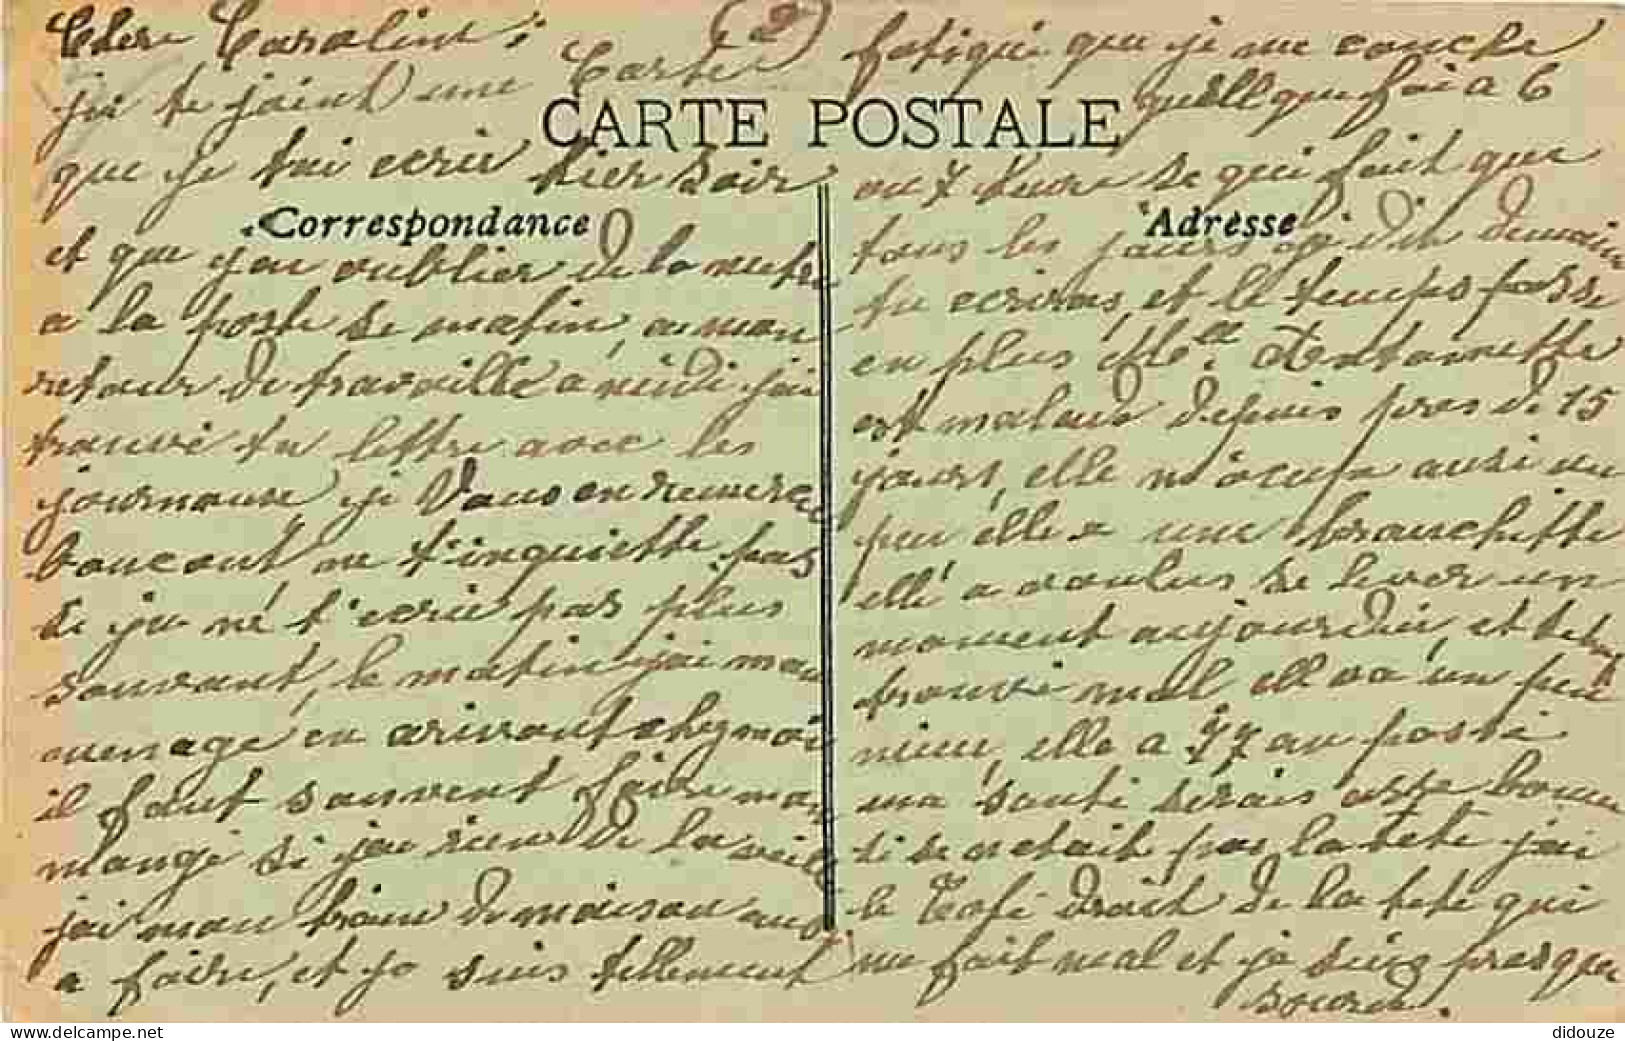 (2)
Cher Caroline,
je te joint une Carte
que je tai ecrie hier soir
et que j'ai oublier de la metre
a la poste se matin, a mon
retour de travaille a midi j'ai
trouvé ta lettre avec les
journaux je vous en remercie
boucout, ne t'inquiette pas
si je ne t'ecrie pas plus
souvant, le matin j'ai mon
menage en arivant chez moi
il faut souvent faire mon
mangé si j'ai rien de la veille
j'ai mon train de maison aussi
a faire, et je suis tellement
CARTE POSTALE
Correspondance
Adresse
fatigué que je me couche
quell que foi a 6
ou 7 heure se qui fait que
tous les jours je dit demain
tu ecriras, et le temps passe
en plus Melle Antoinette
est malade depuis pres de 15
jours, elle m'ocupe aussi un
peu elle a une bronchitte
elle a voulus se lever un
moment aujourdui, et
trouve mal elle va un peu
mieu, elle a 77 an passé
ma santé serais asse bonne
si se netait pas la tete j'ai
le Coté droit de la tete qui
me fait mal et je suis presque
sourde.
didouze
delcampe.net